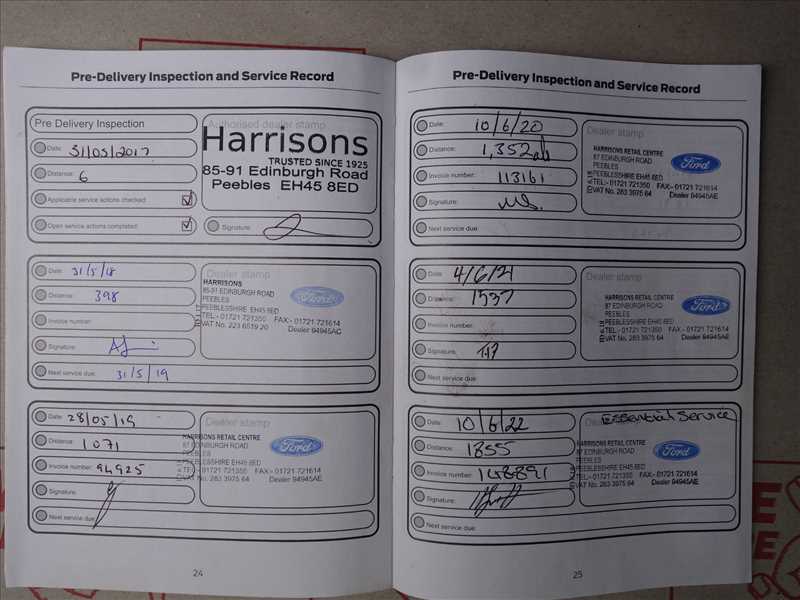 Pre-Delivery Inspection and Service Record
Pre Delivery Inspection
Date: 31/05/2017
Distance: 6
Applicable service actions checked
Open service actions completed
Authorised dealer stamp
Harrisons
TRUSTED SINCE 1925
85-91 Edinburgh Road
Peebles EH45 8ED
Signature:
Date: 31/5/18
Distance: 398
Invoice number:
Signature:
Next service due: 31/5/19
Dealer stamp
HARRISONS
85-91 EDINBURGH ROAD
PEEBLES
PEEBLESSHIRE EH45 8ED
TEL:- 01721 721350 FAX:- 01721 721614
VAT No. 223 6519 20 Dealer 94945AC
Ford
Date: 28/05/19
Distance: 1071
Invoice number: 94925
Signature:
Next service due:
Dealer stamp
HARRISONS RETAIL CENTRE
87 EDINBURGH ROAD
PEEBLES
PEEBLESSHIRE EH45 8ED
TEL:- 01721 721350 FAX:- 01721 721614
VAT No. 283 3975 64 Dealer 94945AE
Ford
24
Pre-Delivery Inspection and Service Record
Date: 10/6/20
Distance: 1,352
Invoice number: 113161
Signature:
Next service due:
Dealer stamp
HARRISONS RETAIL CENTRE
87 EDINBURGH ROAD
PEEBLES
PEEBLESSHIRE EH45 8ED
TEL:- 01721 721350 FAX:- 01721 721614
VAT No. 283 3975 64 Dealer 94945AE
Ford
Date: 4/6/21
Distance: 1537
Invoice number:
Signature:
Next service due:
Dealer stamp
HARRISONS RETAIL CENTRE
87 EDINBURGH ROAD
PEEBLES
PEEBLESSHIRE EH45 8ED
TEL:- 01721 721350 FAX:- 01721 721614
VAT No. 283 3975 64 Dealer 94945AE
Ford
Date: 10/6/22
Distance: 1855
Invoice number: 148891
Signature:
Next service due:
Dealer stamp
Essential Service
HARRISONS RETAIL CENTRE
87 EDINBURGH ROAD
PEEBLES
PEEBLESSHIRE EH45 8ED
TEL:- 01721 721350 FAX:- 01721 721614
VAT No. 283 3975 64 Dealer 94945AE
Ford
25